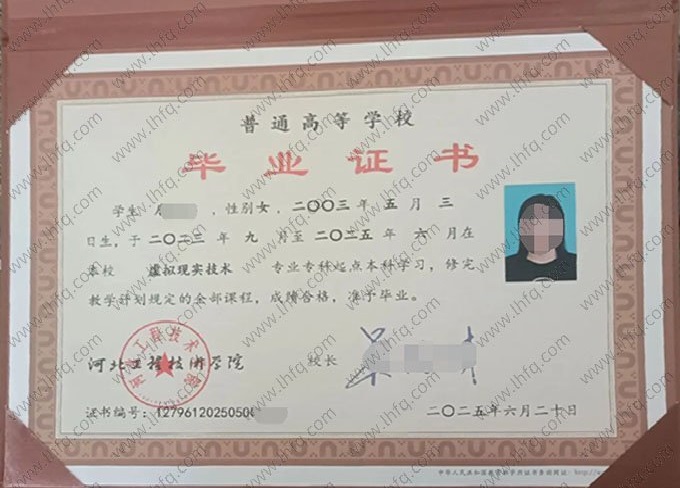 普通高等学校
毕业证书
学生 月 ，性别女，二〇〇三年 五 月 三
日生，于二〇二三 年 九 月至二〇二五 年 六月在
本校 虚拟现实技术 专业专科起点本科学习，修完
教学计划规定的全部课程，成绩合格，准予毕业。
河北工程技术学院
校长
证书编号：1279612025050
二〇二五年六月二十日
中华人民共和国教育部学历证书查询网址：http://
www.lhfq.com